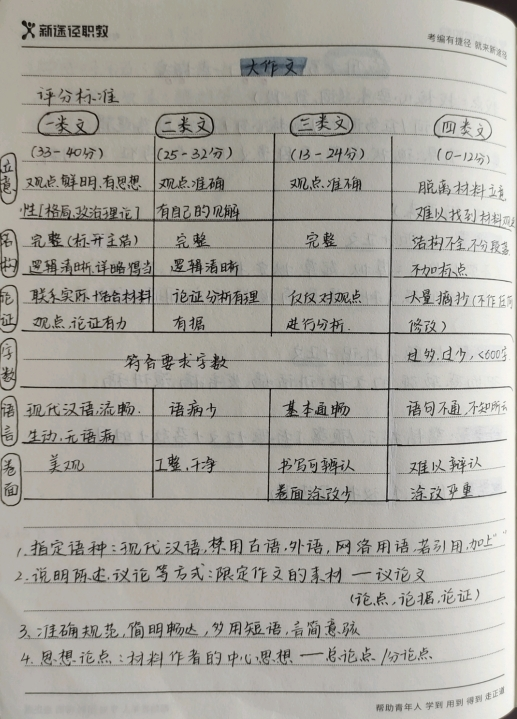 新途径职教
考编有捷径 就来新途径
大作文
评分标准
一类文 二类文 三类文 四类文
(33-40分) (25-32分) (13-24分) (0-12分)
立意 观点鲜明,有思想 观点准确 观点准确 脱离材料立意
性[格局,政治理论] 有自己的见解 难以找到材料观点
结构 完整(标开主结) 完整 完整 结构不全,不分段落
逻辑清晰,详略得当 逻辑清晰 不加标点
论证 联系实际,结合材料 论证分析有理 仅仅对观点 大量摘抄(不作任何
观点,论证有力 有据 进行分析. 修改)
字数 符合要求字数 过多,过少,<600字
语言 现代汉语,流畅. 语病少 基本通畅 语句不通,不知所云
生动,无语病
卷面 美观 工整,干净 书写可辨认 难以辩认
卷面涂改少 涂改严重
1.指定语种:现代汉语,禁用古语,外语,网络用语,若引用,加上“ ”
2.说明陈述,议论等方式:限定作文的素材 — 议论文
(论点,论据,论证)
3.准确规范,简明畅达,多用短语,言简意赅
4.思想论点:材料作者的中心思想 — 总论点/分论点
帮助青年人 学到 用到 得到 走正道